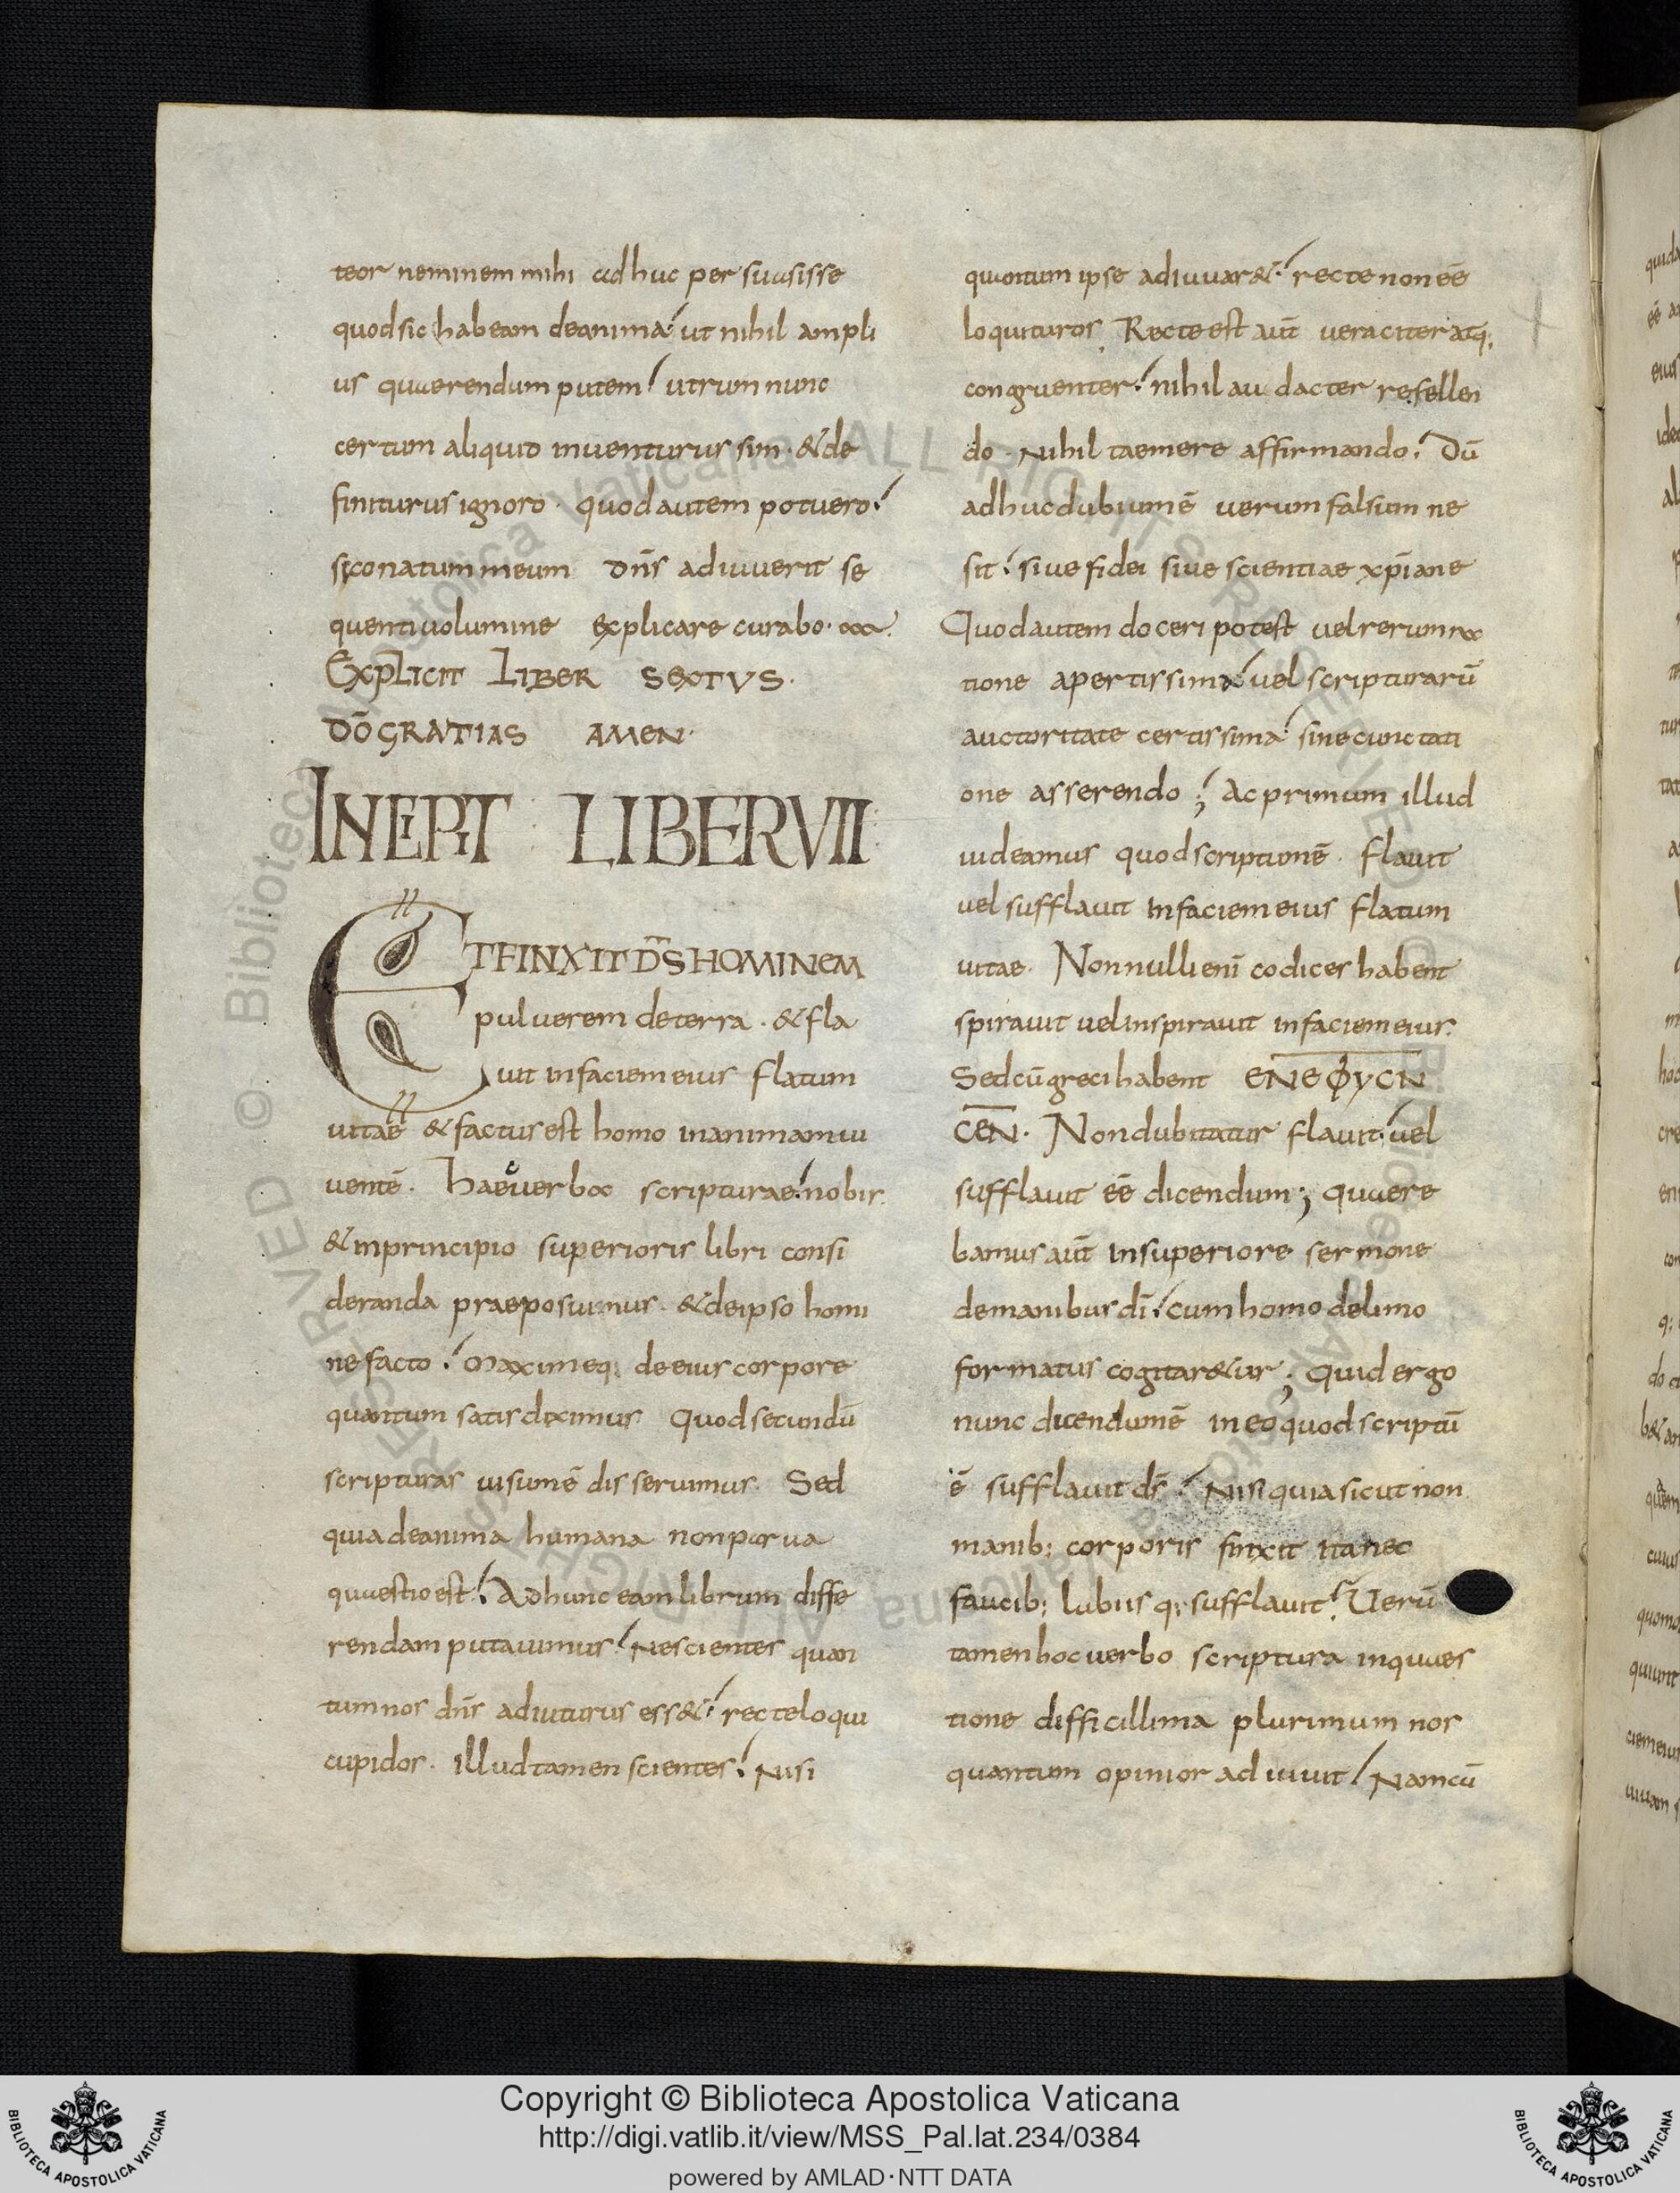 teor neminem mihi adhuc persuasisse
quod sic habeam deanima ut nihil ampli
us quaerendum putem utrum nunc
certum aliquid inuenturus sim · & de
finiturus ignoro · quod autem potuero
si conatum meum dn̄s adiuuerit se
quenti uolumine explicare curabo ·
EXPLICIT LIBER SEXTVS ·
DŌ GRATIAS AMEN ·
INCIPIT LIBER VII
ET FINXIT D̄S HOMINEM
puluerem deterra · & fla
uit infaciem eius flatum
uitae & factus est homo inanimam ui
uentē · haec uerba scripturae nobis
& inprincipio superioris libri consi
deranda praeposuimus · & deipso homi
ne facto maximeq; de eius corpore
quantum satis diximus quod secundū
scripturas uisum ē disseruimus · Sed
quia deanima humana non parua
quaestio est Adhunc eam librum diffe
rendam putauimus Nescientes quan
tum nos dn̄s adiuturus ess& recte loqui
cupidos · illud tamen scientes Nisi
quantum ipse adiuuar& recte non eē
loquituros Recte est aut̄ ueraciter atq;
congruenter nihil audacter refellen
do · Nihil taemere affirmando Dū
adhuc dubium ē uerum falsum ne
sit siue fidei siue scientiae xp̄iane
Quod autem doceri potest uel rerum ra
tione apertissima uel scripturarū
auctoritate certissima sine cunctati
one asserendo ; Ac primum illud
uideamus quod scriptum ē · flauit
uel sufflauit infaciem eius flatum
uitae · Nonnulli eni codices habent
spirauit uel inspirauit infaciem eius
Sed cū greci habent ENEΦYCN
CEN · Non dubitatur flauit uel
sufflauit eē dicendum ; quaere
bamus aut̄ insuperiore sermone
demanibus dī cum homo delimo
formatus cogitar&ur ; Quid ergo
nunc dicendum ē in eo quod scriptū
ē sufflauit ds̄ Nisi quia sicut non
manib; corporis finxit ita nec
faucib; labiis q; sufflauit Uerū
tamen hoc uerbo scriptura inquaes
tione difficillima plurimum nos
quantum opinior adiuuit Nam cū
Copyright © Biblioteca Apostolica Vaticana
http://digi.vatlib.it/view/MSS_Pal.lat.234/0384
powered by AMLAD·NTT DATA